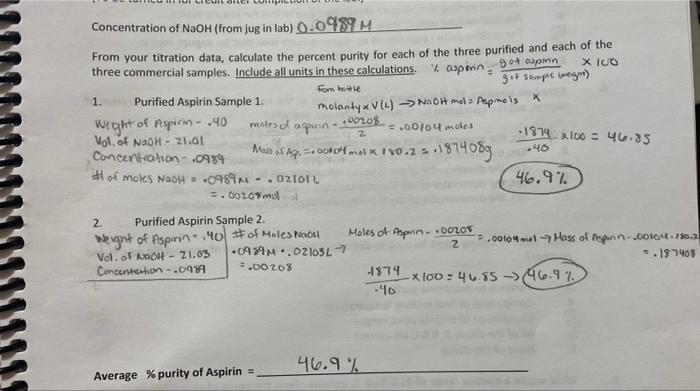 Concentration of NaOH (from jug in lab) 0.0989 M
From your titration data, calculate the percent purity for each of the three purified and each of the
three commercial samples. Include all units in these calculations. % aspirin = g of aspirin / g of sample (weight) x 100
from bottle
1. Purified Aspirin Sample 1. molarity x V(L) → NaOH mol = Asp mols x
Weight of Aspirin - .40 moles of aspirin - .00208 / 2 = .00104 moles
.1874 / .40 x100 = 46.85
Vol. of NaOH - 21.01
Mass of Asp. = .00104 mol x 180.2 = .187408g
Concentration - .0989
# of moles NaOH = .0989M - .02101L
46.9%
= .00208 mol
2. Purified Aspirin Sample 2.
Weight of Aspirin - .40 # of Moles NaOH Moles of Aspirin - .00208 / 2 = .00104 mol → Mass of Aspirin - .00104 . 180.2
Vol. of NaOH - 21.03 .0989M . .02103L → = .187408
Concentration - .0989 = .00208 .1874 / .40 x100 = 46.85 → 46.9%
Average % purity of Aspirin = 46.9%